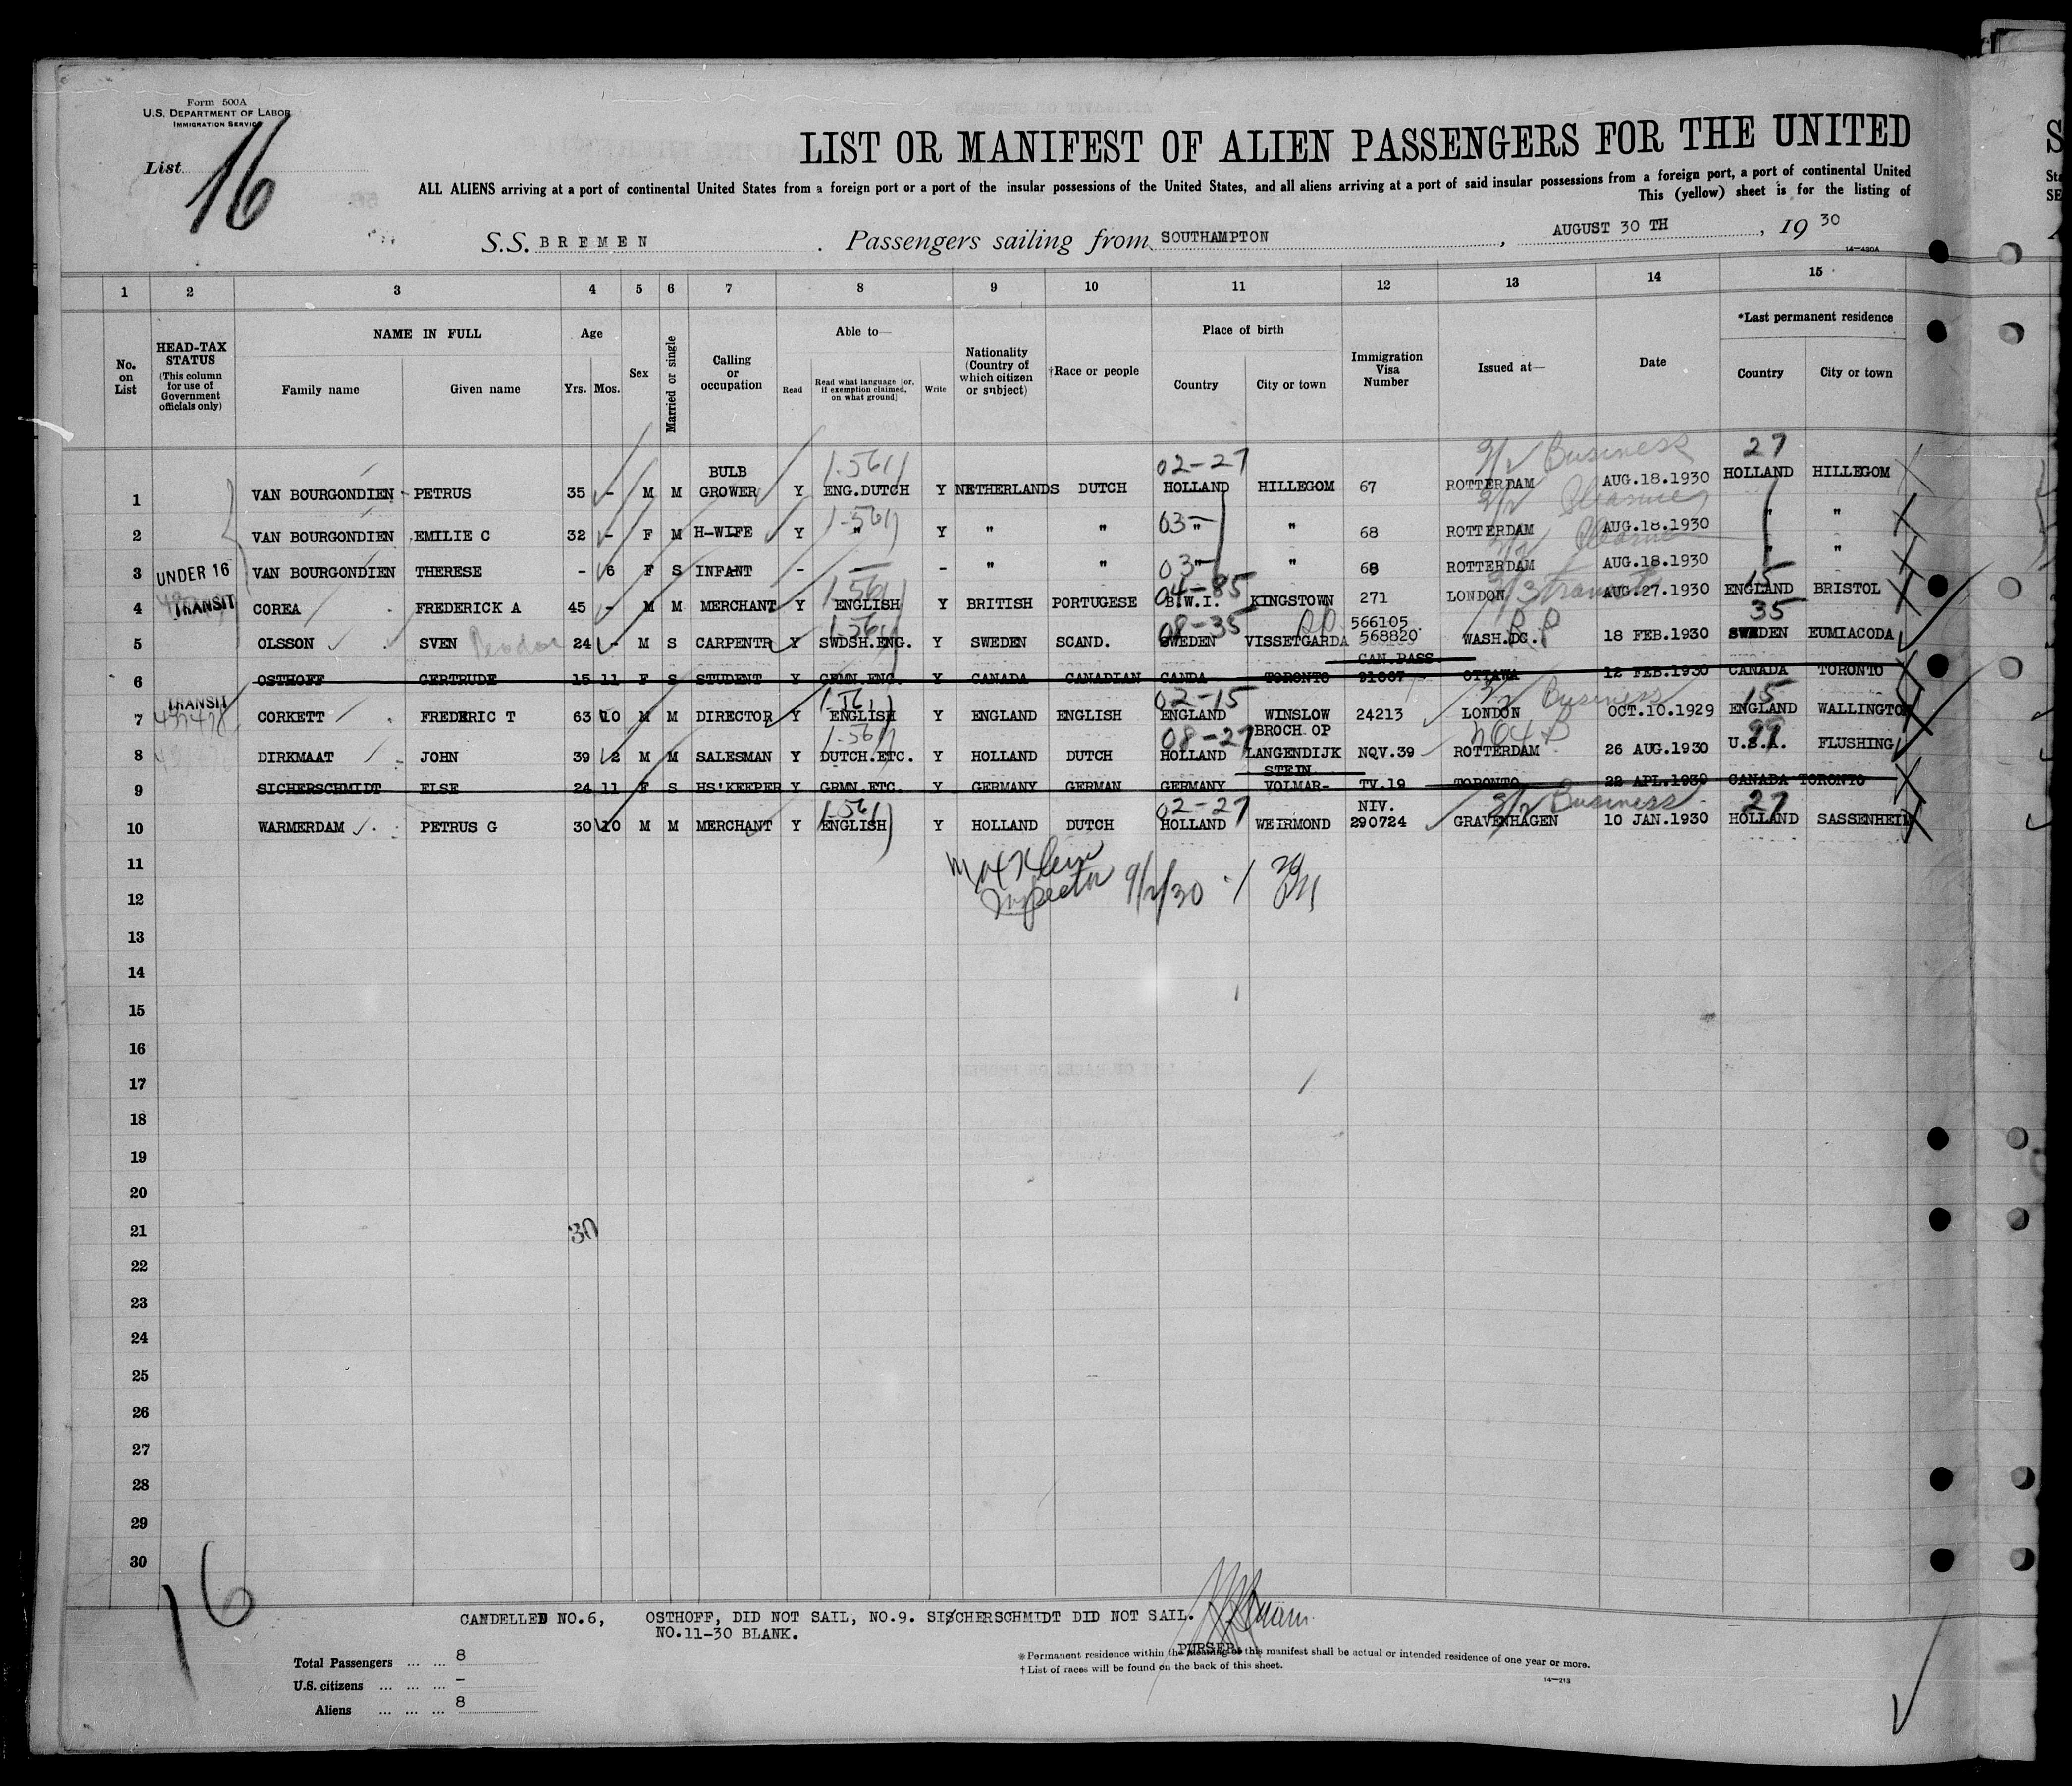 Form 500A
U.S. DEPARTMENT OF LABOR
IMMIGRATION SERVICE
List 16
LIST OR MANIFEST OF ALIEN PASSENGERS FOR THE UNITED
ALL ALIENS arriving at a port of continental United States from a foreign port or a port of the insular possessions of the United States, and all aliens arriving at a port of said insular possessions from a foreign port, a port of continental United
This (yellow) sheet is for the listing of
S.S. BREMEN . Passengers sailing from SOUTHAMPTON , AUGUST 30 TH , 19 30
14—430A
1 2 3 4 5 6 7 8 9 10 11 12 13 14 15
No. on List
HEAD-TAX STATUS (This column for use of Government officials only)
NAME IN FULL
Family name Given name
Age
Yrs. Mos.
Sex
Married or single
Calling or occupation
Able to—
Read Read what language [or, if exemption claimed, on what ground] Write
Nationality (Country of which citizen or subject)
†Race or people
Place of birth
Country City or town
Immigration Visa Number
Issued at—
Date
*Last permanent residence
Country City or town
1-561 02-27 9/2 Business 27
1 VAN BOURGONDIEN PETRUS 35 - M M BULB GROWER Y ENG.DUTCH Y NETHERLANDS DUTCH HOLLAND HILLEGOM 67 ROTTERDAM AUG.18.1930 HOLLAND HILLEGOM
1-561 03-
2 VAN BOURGONDIEN EMILIE C 32 - F M H-WIFE Y " Y " " " " 68 ROTTERDAM AUG.18.1930 " "
03-
3 UNDER 16 VAN BOURGONDIEN THERESE - 6 F S INFANT - — - " " " " 68 ROTTERDAM AUG.18.1930 " "
1-561 04-85 9/3 Transit 15
4 TRANSIT COREA FREDERICK A 45 - M M MERCHANT Y ENGLISH Y BRITISH PORTUGESE B.W.I. KINGSTOWN 271 LONDON AUG.27.1930 ENGLAND BRISTOL
1-561 08-35 566105 R.P 35
5 OLSSON SVEN 24 - M S CARPENTR Y SWDSH.ENG. Y SWEDEN SCAND. SWEDEN VISSETGARDA 568820 WASH.DC. 18 FEB.1930 SWEDEN EUMIACODA
CAN.PASS.
6 OSTHOFF GERTRUDE 15 11 F S STUDENT Y GRMN.ENG. Y CANADA CANADIAN CANDA TORONTO 91067 OTTAWA 12 FEB.1930 CANADA TORONTO
1-561 02-15 Business 15
7 TRANSIT CORKETT FREDERIC T 63 10 M M DIRECTOR Y ENGLISH Y ENGLAND ENGLISH ENGLAND WINSLOW 24213 LONDON OCT.10.1929 ENGLAND WALLINGTON
1-561 08-27 BROCH.OP 99
8 DIRKMAAT JOHN 39 2 M M SALESMAN Y DUTCH.ETC. Y HOLLAND DUTCH HOLLAND LANGENDIJK NQV.39 ROTTERDAM 26 AUG.1930 U.S.A. FLUSHING
STEIN
9 SICHERSCHMIDT ELSE 24 11 F S HS'KEEPER Y GRMN.ETC. Y GERMANY GERMAN GERMANY VOLMAR- TV.19 TORONTO 22 APL.1930 CANADA TORONTO
1-561 02-27 NIV. 9/2 Business 27
10 WARMERDAM PETRUS G 30 10 M M MERCHANT Y ENGLISH Y HOLLAND DUTCH HOLLAND WEIRMOND 290724 GRAVENHAGEN 10 JAN.1930 HOLLAND SASSENHEIM
11
Inspector 9/2/30
12
13
14
15
16
17
18
19
20
21 30
22
23
24
25
26
27
28
29
30
16
CANDELLED NO.6, OSTHOFF, DID NOT SAIL, NO.9. SISCHERSCHMIDT DID NOT SAIL.
NO.11-30 BLANK.
PURSER.
Total Passengers ... ... 8
U.S. citizens ... ... ... -
Aliens ... ... ... 8
*Permanent residence within the meaning of this manifest shall be actual or intended residence of one year or more.
†List of races will be found on the back of this sheet.
14—213